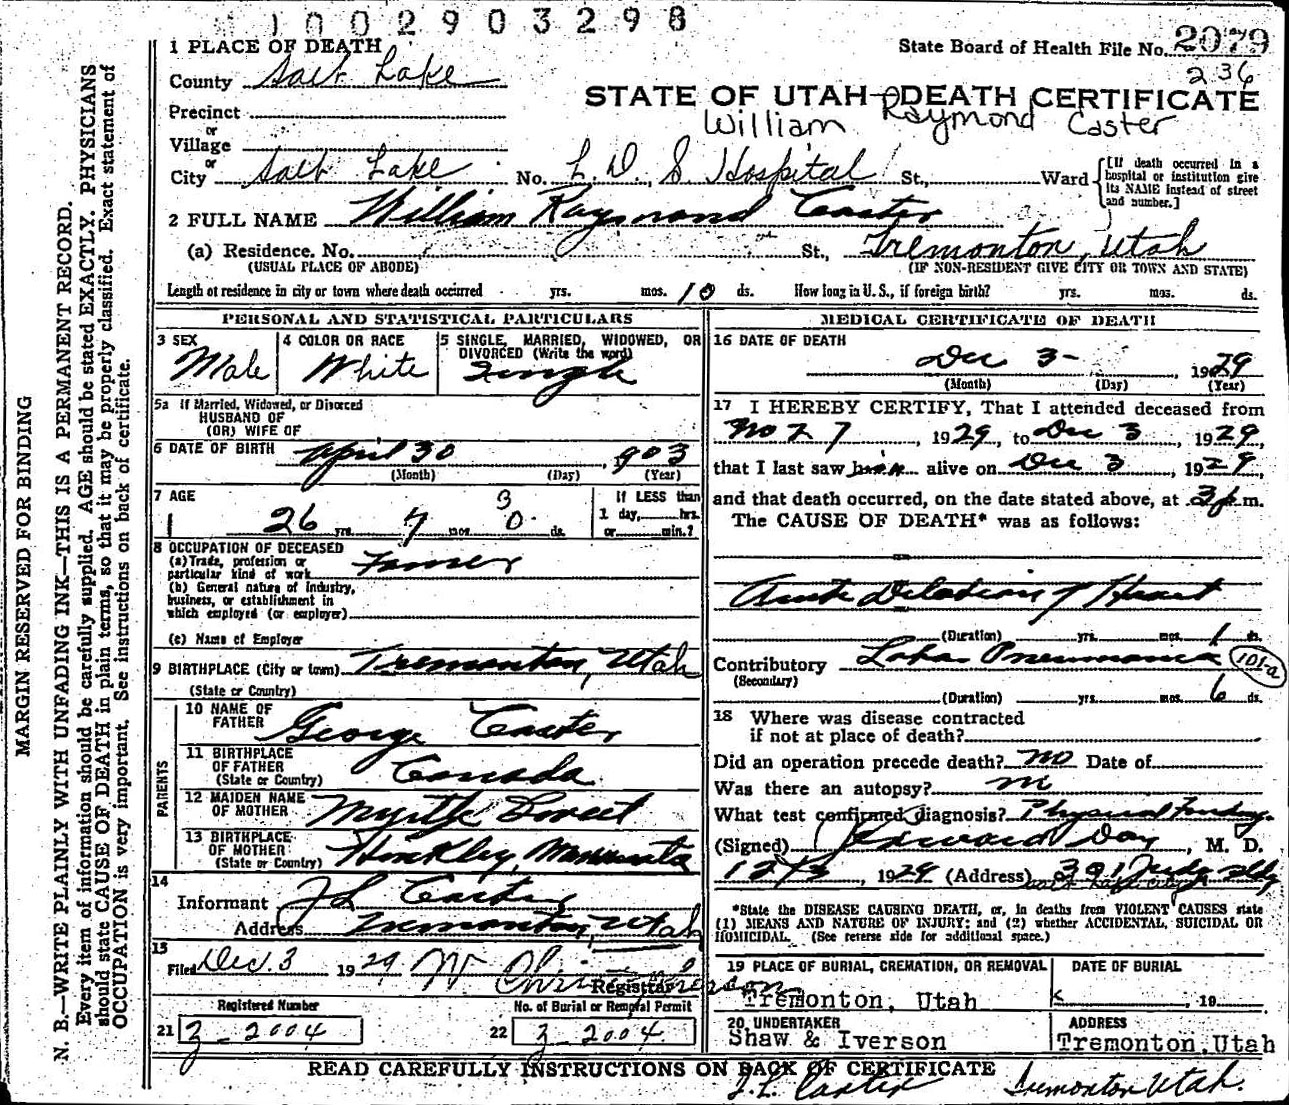 1002903298
State Board of Health File No. 2079
236
STATE OF UTAH—DEATH CERTIFICATE
William Raymond Caster
1 PLACE OF DEATH
County Salt Lake
Precinct
or
Village
or
City Salt Lake No. L. D. S Hospital St., Ward
[If death occurred in a hospital or institution give its NAME instead of street and number.]
2 FULL NAME William Raymond Caster
(a) Residence. No. St., Tremonton, Utah
(USUAL PLACE OF ABODE) (IF NON-RESIDENT GIVE CITY OR TOWN AND STATE)
Length of residence in city or town where death occurred yrs. mos. 10 ds. How long in U.S., if foreign birth? yrs. mos. ds.
PERSONAL AND STATISTICAL PARTICULARS
3 SEX Male
4 COLOR OR RACE White
5 SINGLE, MARRIED, WIDOWED, OR DIVORCED (Write the word) Single
5a If Married, Widowed, or Divorced
HUSBAND OF
(OR) WIFE OF
6 DATE OF BIRTH April 30 1903
(Month) (Day) (Year)
7 AGE 26 yrs. 7 mos. 3 0 ds.
If LESS than
1 day, hrs.
or min.?
8 OCCUPATION OF DECEASED
(a) Trade, profession or
particular kind of work Farmer
(b) General nature of industry,
business, or establishment in
which employed (or employer)
(c) Name of Employer
9 BIRTHPLACE (City or town) Tremonton, Utah
(State or Country)
PARENTS
10 NAME OF
FATHER George Caster
11 BIRTHPLACE
OF FATHER Canada
(State or Country)
12 MAIDEN NAME
OF MOTHER Myrtle Sweet
13 BIRTHPLACE
OF MOTHER Hinkley, Minnesota
(State or Country)
14
Informant J L Caster
Address Tremonton, Utah
15
Filed Dec. 3 1929 W Christenson
Registrar
Registered Number
21 3-2004
No. of Burial or Removal Permit
22 3-2004
MEDICAL CERTIFICATE OF DEATH
16 DATE OF DEATH
Dec 3- 1929
(Month) (Day) (Year)
17 I HEREBY CERTIFY, That I attended deceased from
Nov 27, 1929, to Dec 3, 1929,
that I last saw him alive on Dec 3, 1929,
and that death occurred, on the date stated above, at 3 p.m.
The CAUSE OF DEATH* was as follows:
Acute Dilation of Heart
(Duration) yrs. mos. 1 ds.
Contributory Lobar Pneumonia 101-a
(Secondary)
(Duration) yrs. mos. 6 ds.
18 Where was disease contracted
if not at place of death?
Did an operation precede death? no Date of
Was there an autopsy? no
What test confirmed diagnosis? Physical Findings
(Signed) Edward Day, M. D.
12/3, 1929 (Address) 301 Judge Bldg
Salt Lake City
*State the DISEASE CAUSING DEATH, or, in deaths from VIOLENT CAUSES state
(1) MEANS AND NATURE OF INJURY; and (2) whether ACCIDENTAL, SUICIDAL OR
HOMICIDAL. (See reverse side for additional space.)
19 PLACE OF BURIAL, CREMATION, OR REMOVAL
Tremonton, Utah
DATE OF BURIAL
, 19
20 UNDERTAKER
Shaw & Iverson
ADDRESS
Tremonton, Utah
READ CAREFULLY INSTRUCTIONS ON BACK OF CERTIFICATE
J. L. Caster Tremonton Utah.
MARGIN RESERVED FOR BINDING
N. B.—WRITE PLAINLY WITH UNFADING INK—THIS IS A PERMANENT RECORD.
Every item of information should be carefully supplied. AGE should be stated EXACTLY. PHYSICIANS
should state CAUSE OF DEATH in plain terms, so that it may be properly classified. Exact statement of
OCCUPATION is very important. See instructions on back of certificate.